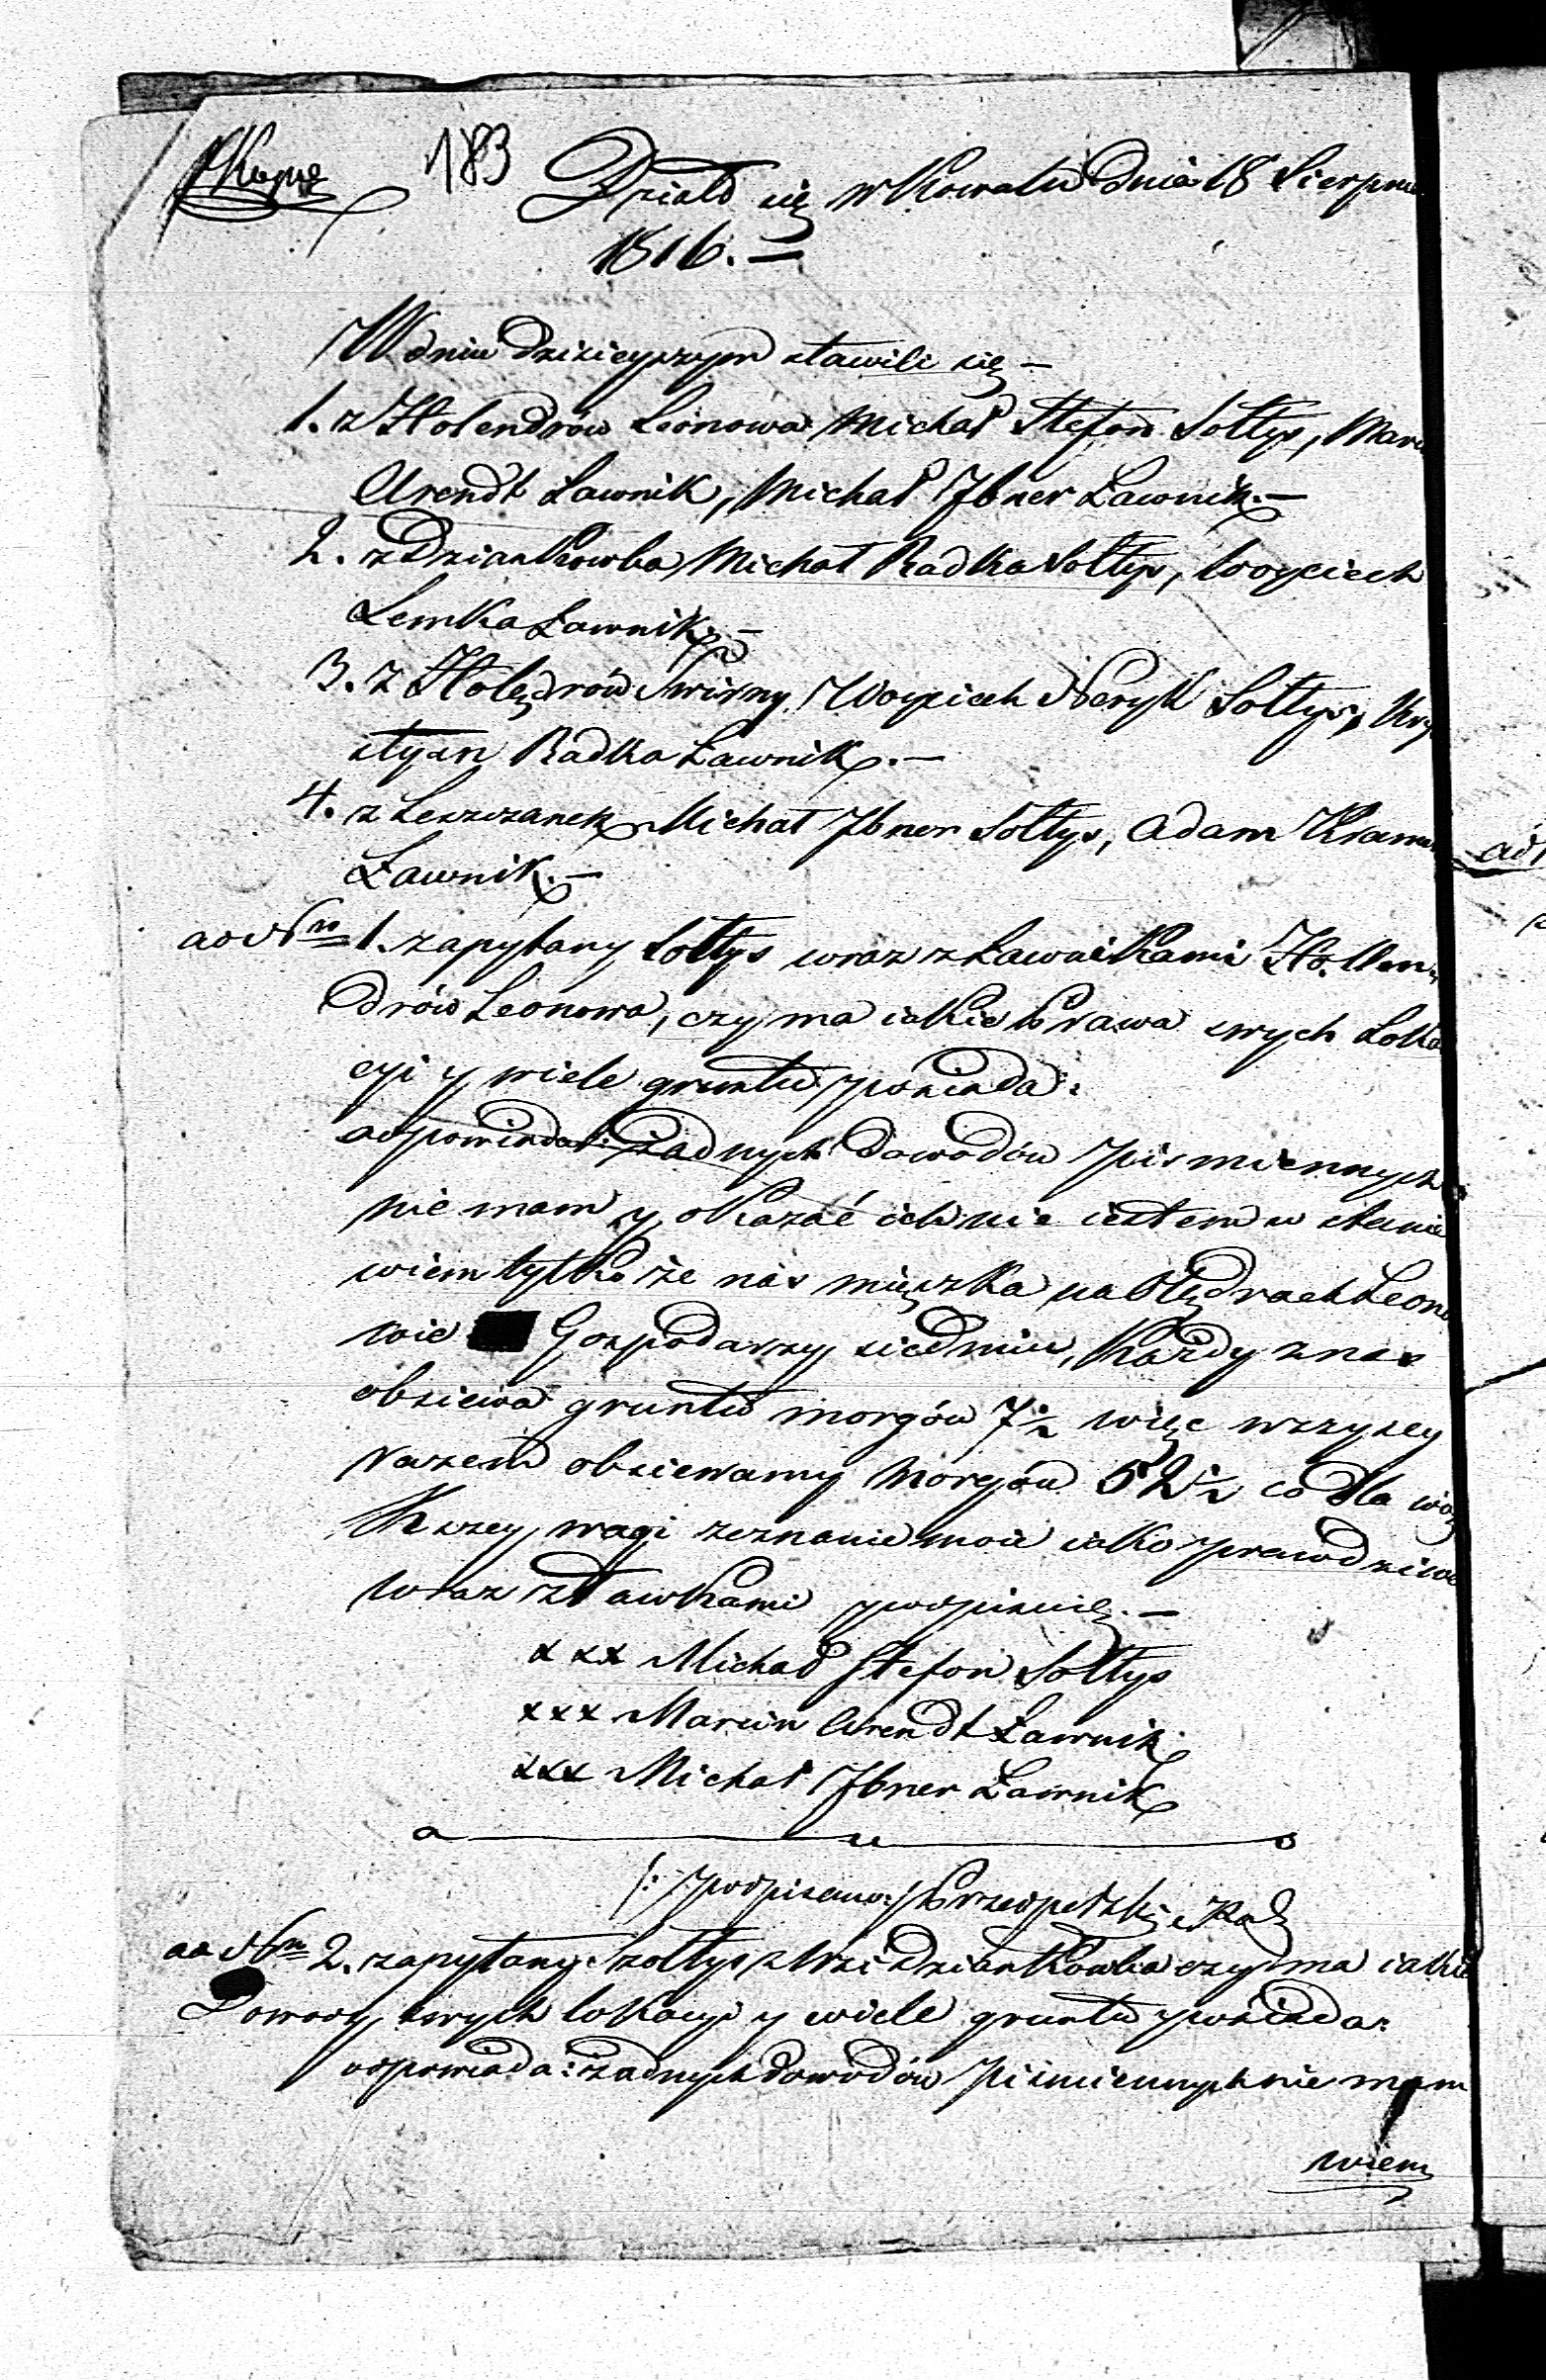 Kopia 183 Działo się w Kowalu dnia 18 Sierpnia
1816. —
W dniu dzisieyszym stawili się —
1. z Holendrów Leonowa Michał Stefon Sołtys, Mar
Arendt Ławnik, Michał Jbner Ławnik. —
2. z Dziankowka Michał Radka Sołtys, Woyciech
Lemka Ławnik. —
3. z Holędrów Świszny Woyciech Neryk Sołtys, Kry
styan Radka Ławnik. —
4. z Leszczanek Michał Jbner Sołtys, Adam Kram
Ławnik. —
ad Nm 1. zapytany Sołtys wraz z Ławnikami Hollen
drów Leonowa, czy ma iakie Prawa swych Loka
cyi y wiele gruntu posiada:
odpowiedział: żadnych dowodów pismiennych
nie mam y okazać ich nie iestem w stanie
wiem tylko że nas mięszka na Olędrach Leono
wie Gospodarzy siedmiu, każdy z nas
obsiewa gruntu morgów 7½ więc wszyscy
razem obsiewamy Morgów 52½ co dla wię
kszey wagi zeznanie moie iako prawdziwe
wraz z Ławnikami podpisuię. —
xxx Michał Stefon Sołtys
xxx Marcin Arendt Ławnik
xxx Michał Jbner Ławnik
/: podpisano:/ Przedpełski
ad Nm 2. zapytany Szołtys z Wsi Dziankowka czy ma iakie
Dowody swych lokacyi y wiele gruntu posiada:
odpowiada: żadnych dowodów pismiennych nie mam
wiem